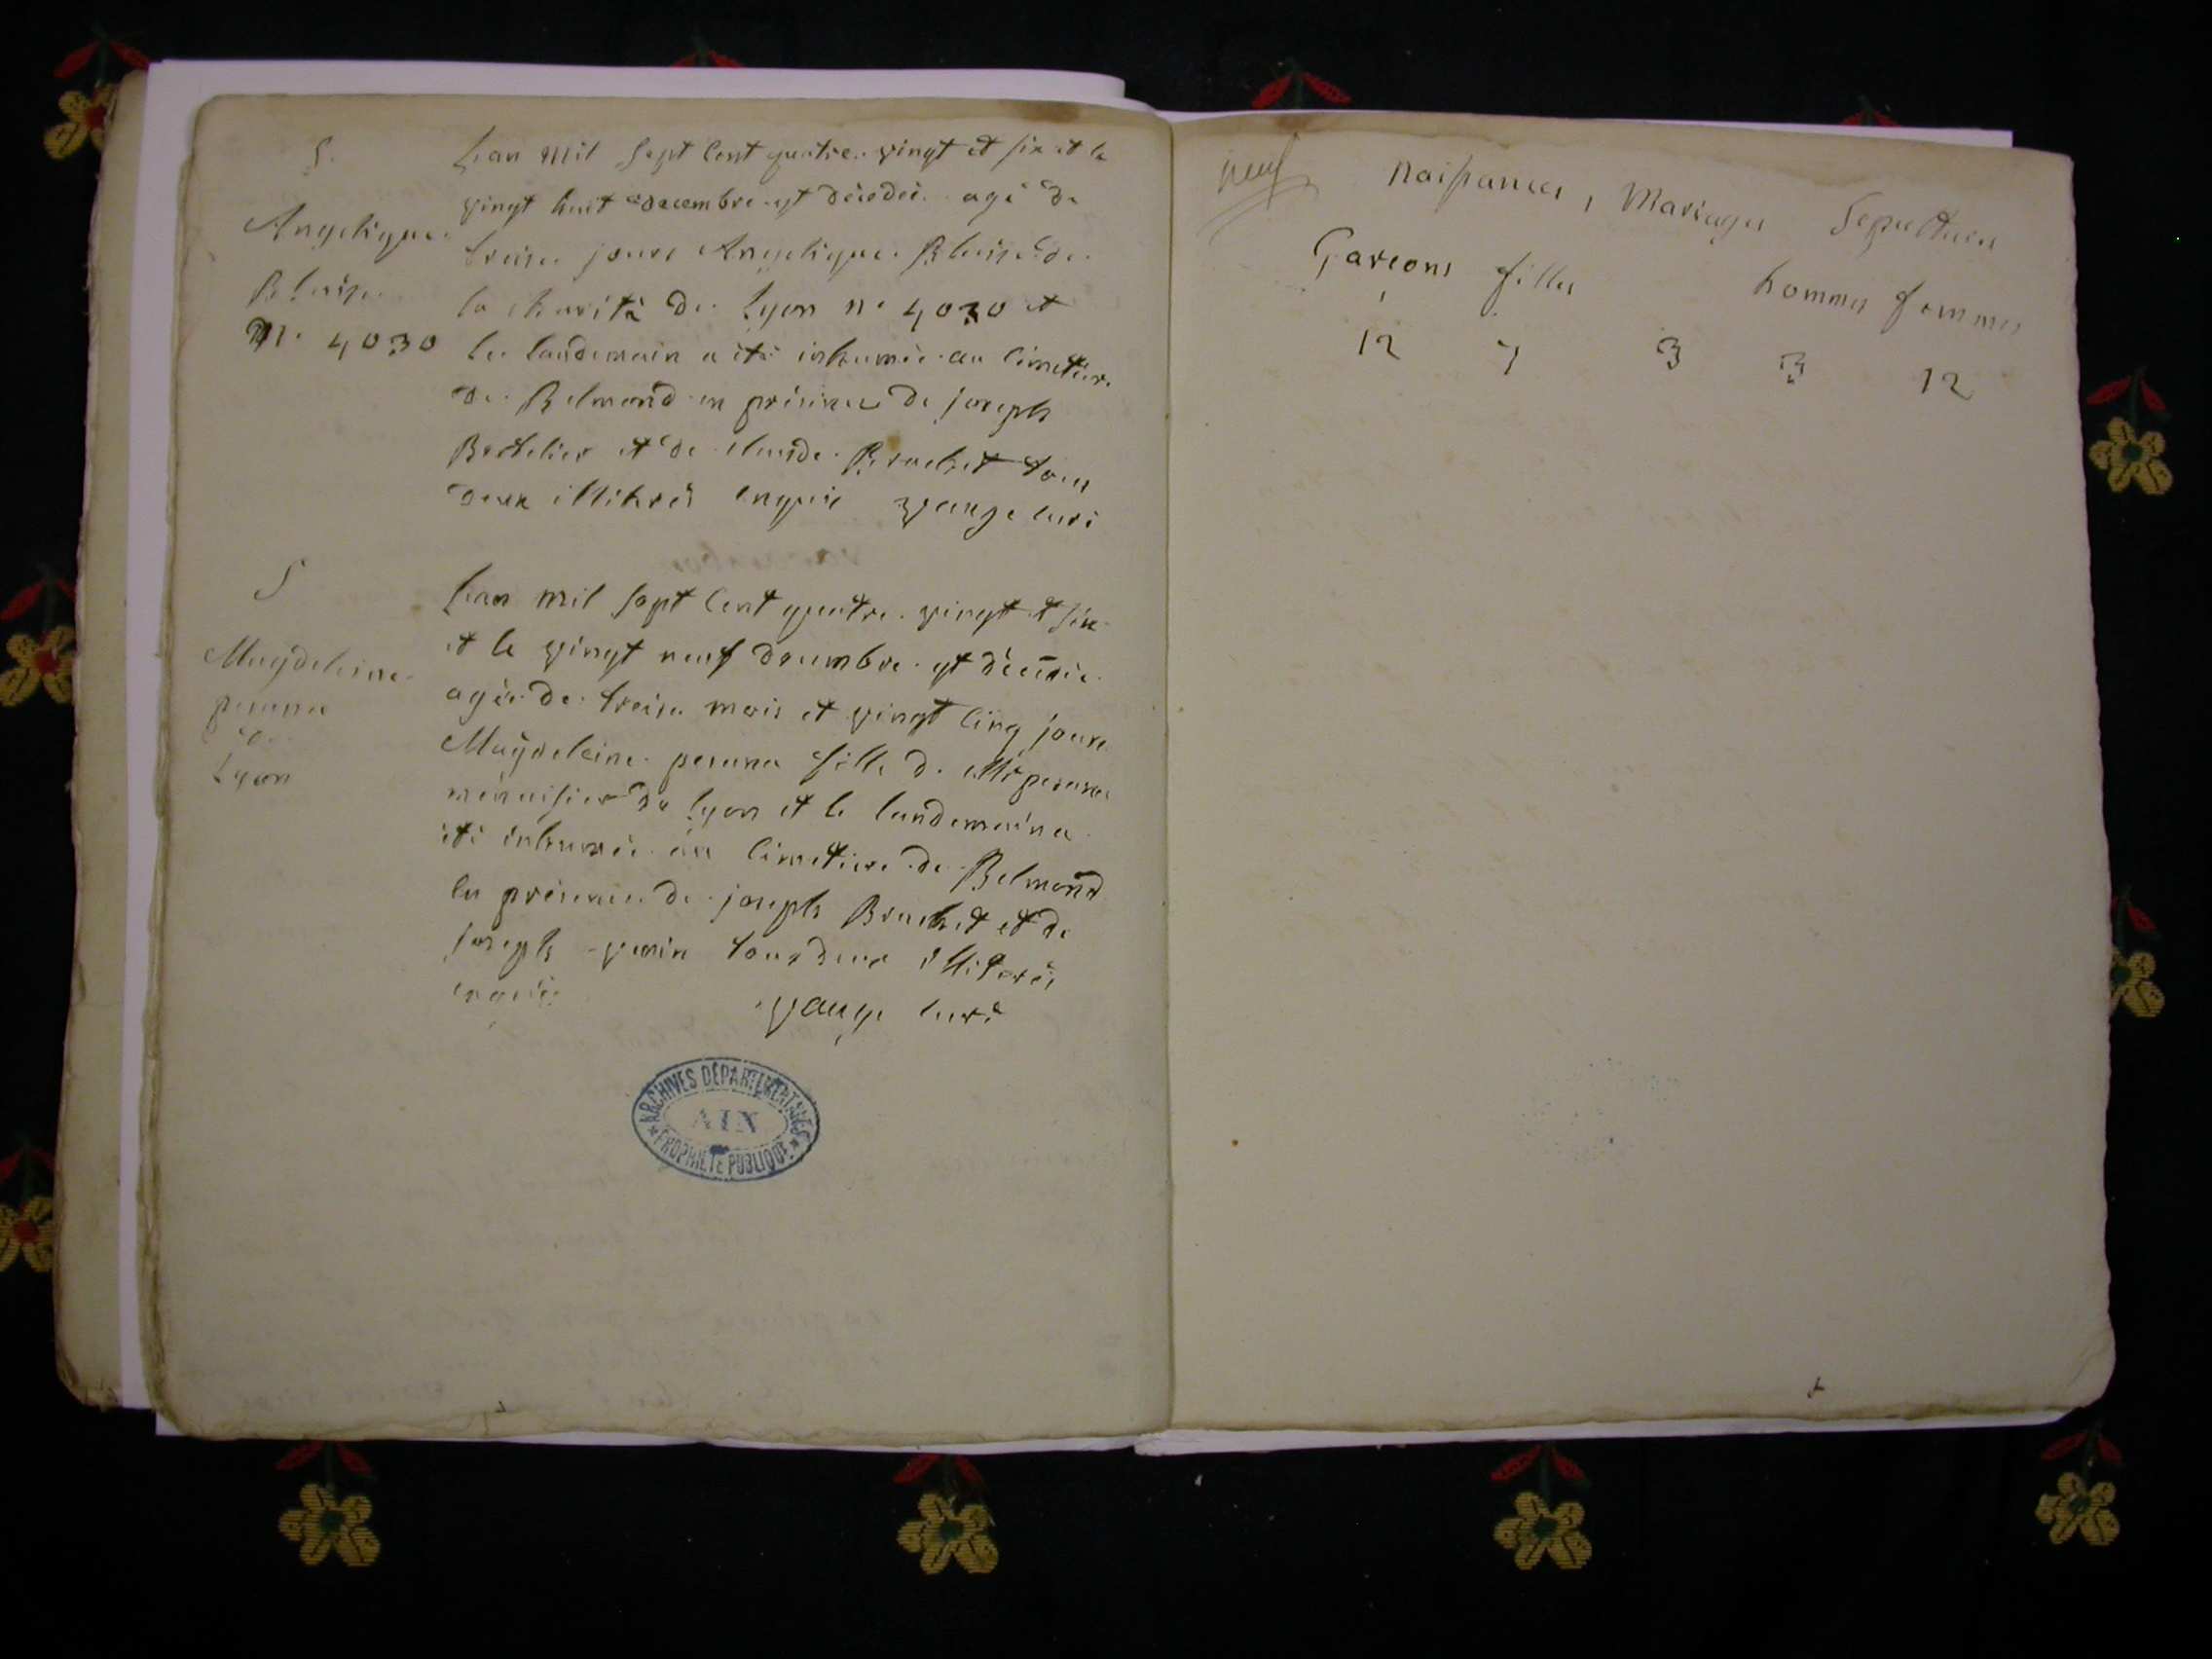 S.
Angelique
Blaise
N. 4030
Lan Mil Sept Cent quatre vingt et six et le
vingt huit decembre est décédée agé de
treise jours Angelique Blaise de
la charité de Lyon n. 4030 et
le landemain a été inhumée au Cimetiere
de Belmond en présence de joseph
Berthelier et de claude Brachet tous
deux illitirés enquis vauge curé
S
Magdeleine
peruna
de
Lyon
Lan mil sept Cent quatre vingt et six
et le vingt neuf decembre est décédée
agée de treise mois et vingt cinq jours
Magdeleine peruna fille de Mr peruna
menuisier de Lyon et le landemain a
été inhumée au Cimetiere de Belmond
en présence de joseph Brachet et de
joseph tous deux illitirés
enquis
vauge curé
ARCHIVES DÉPARTEMENTALES
AIN
PROPRIÉTÉ PUBLIQUE
Naissances, Mariages Sepultures
Garcons filles hommes femmes
12 7 3 3 12